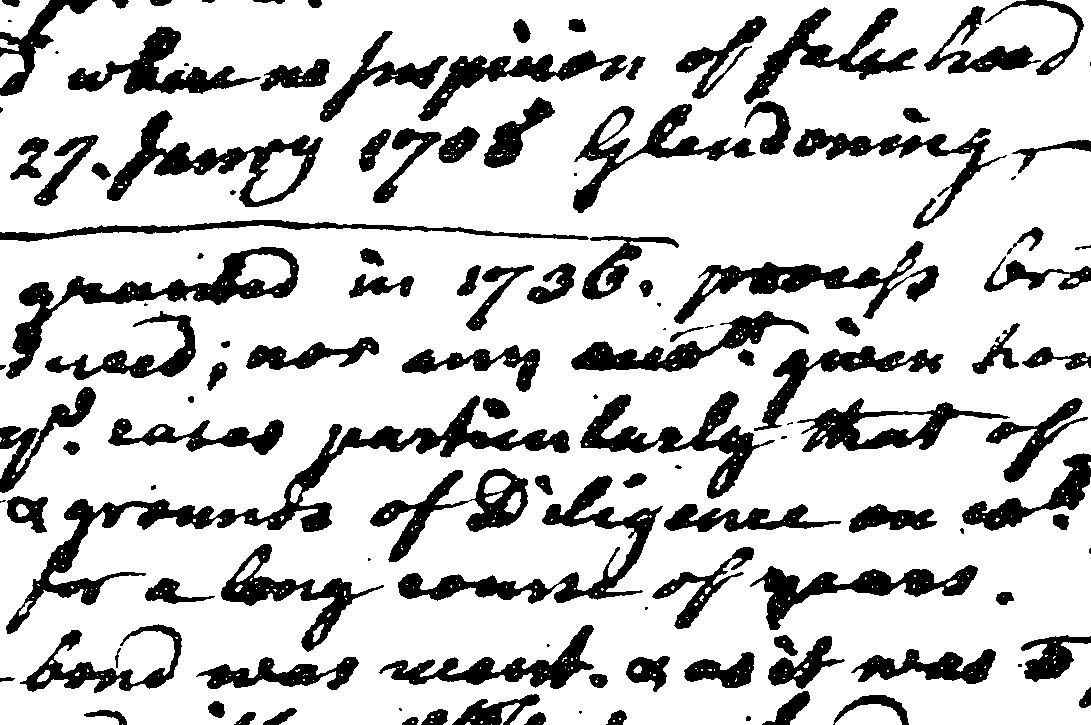 d where no suspicion of falsehood
27. Janry 1708 Glendoning,
granted in 1736. process bro
duced; nor any given hon
yr. cases particularly that of
& grounds of Diligence on wh.
for a long course of years.
bond was want. & as it was